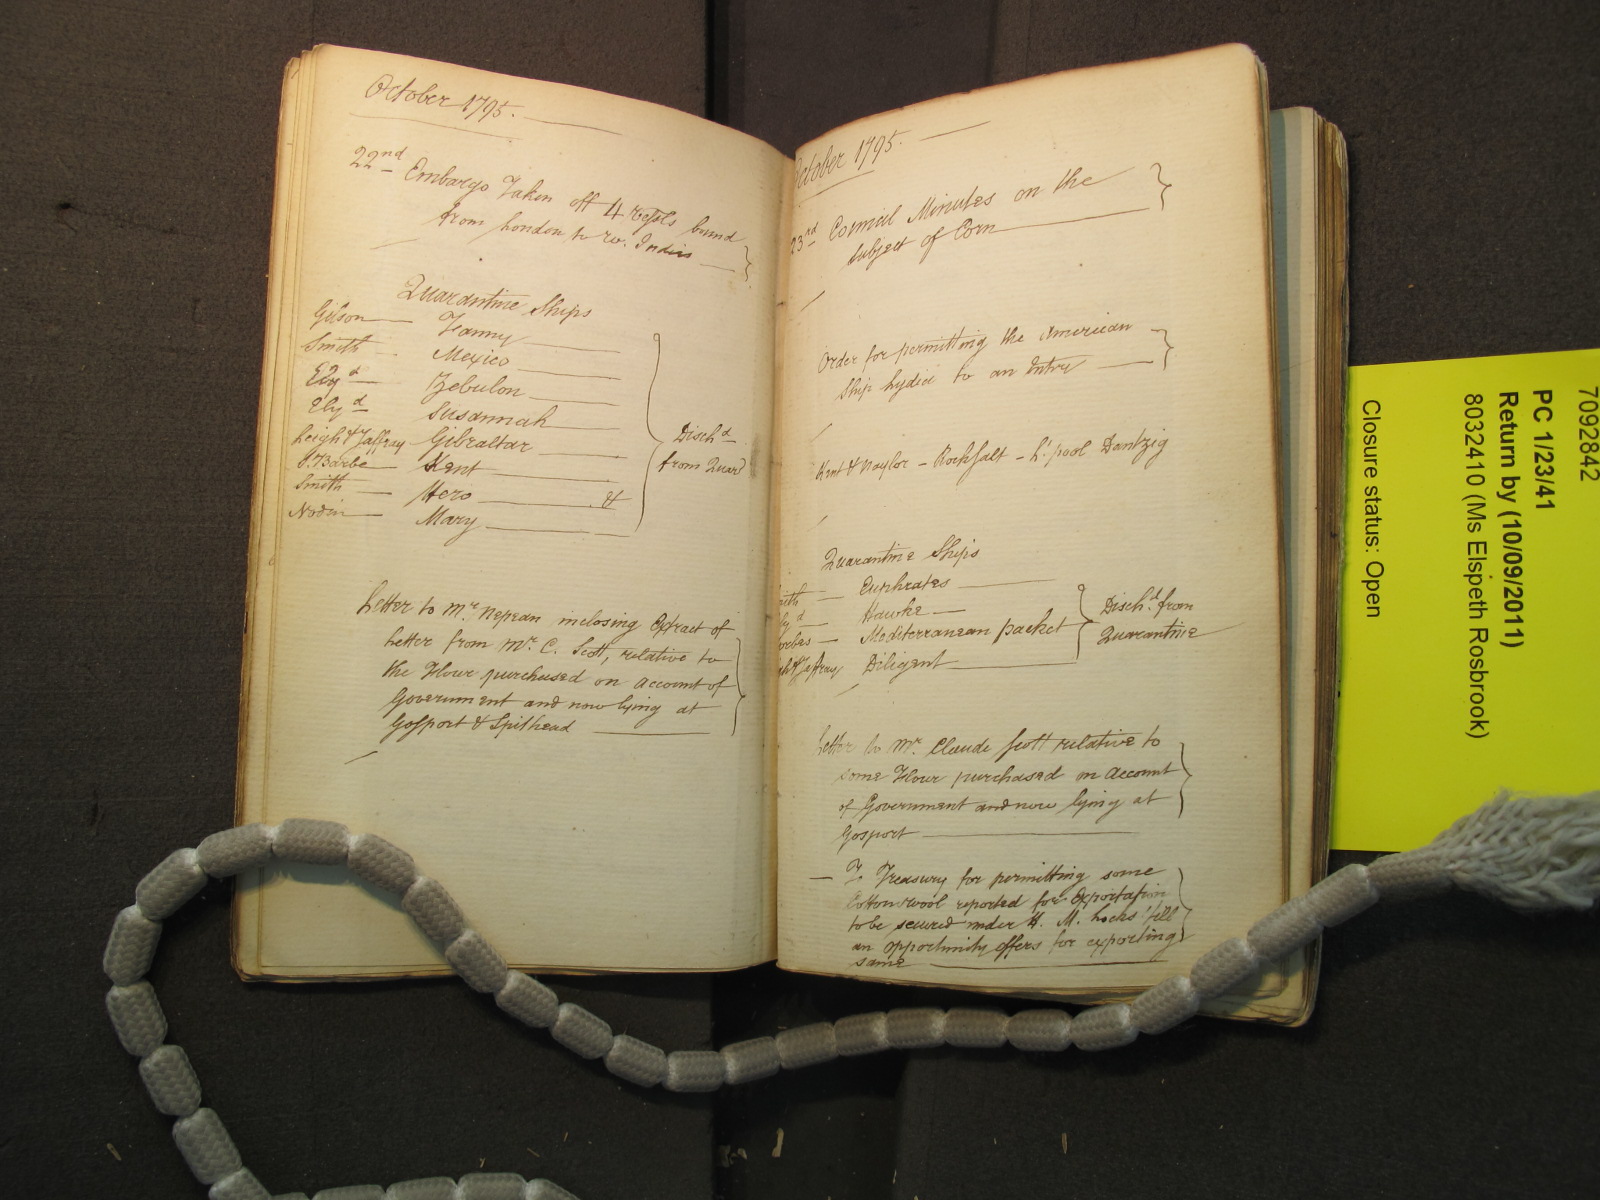 October 1795.
22nd Embargo Taken off 4 Vessls bound
from London to W. Indies
Quarantine Ships
Gilson Fanny
Smith Mexico
Ely d Zebulon
Ely d Susannah
Leigh & Jaffray Gibraltar
St. Barbe Kent
Smith Hero &
Nodin Mary
Disch.d
from Quar.
Letter to Mr. Nepean inclosing Extract of
Letter from Mr. C. Scott, relative to
the Flour purchased on Account of
Government and now lying at
Gosport & Spithead
October 1795.
23rd Council Minutes on the
Subject of Corn
Order for permitting the American
Ship Lydia to an Entry
Kent & Naylor - Rock Salt - L'pool Dantzig
Quarantine Ships
Euphrates
Hawke
Mediterranean packet
Diligent
Disch.d from
Quarantine
Letter to Mr. Claude Scott relative to
some Flour purchased on Account
of Government and now lying at
Gosport
To Treasury for permitting some
Cotton wool reported for Exportation
to be secured under H. M. Locks 'till
an opportunity offers for exporting
same
7092842
PC 1/23/41
Return by (10/09/2011)
8032410 (Ms Elspeth Rosbrook)
Closure status: Open